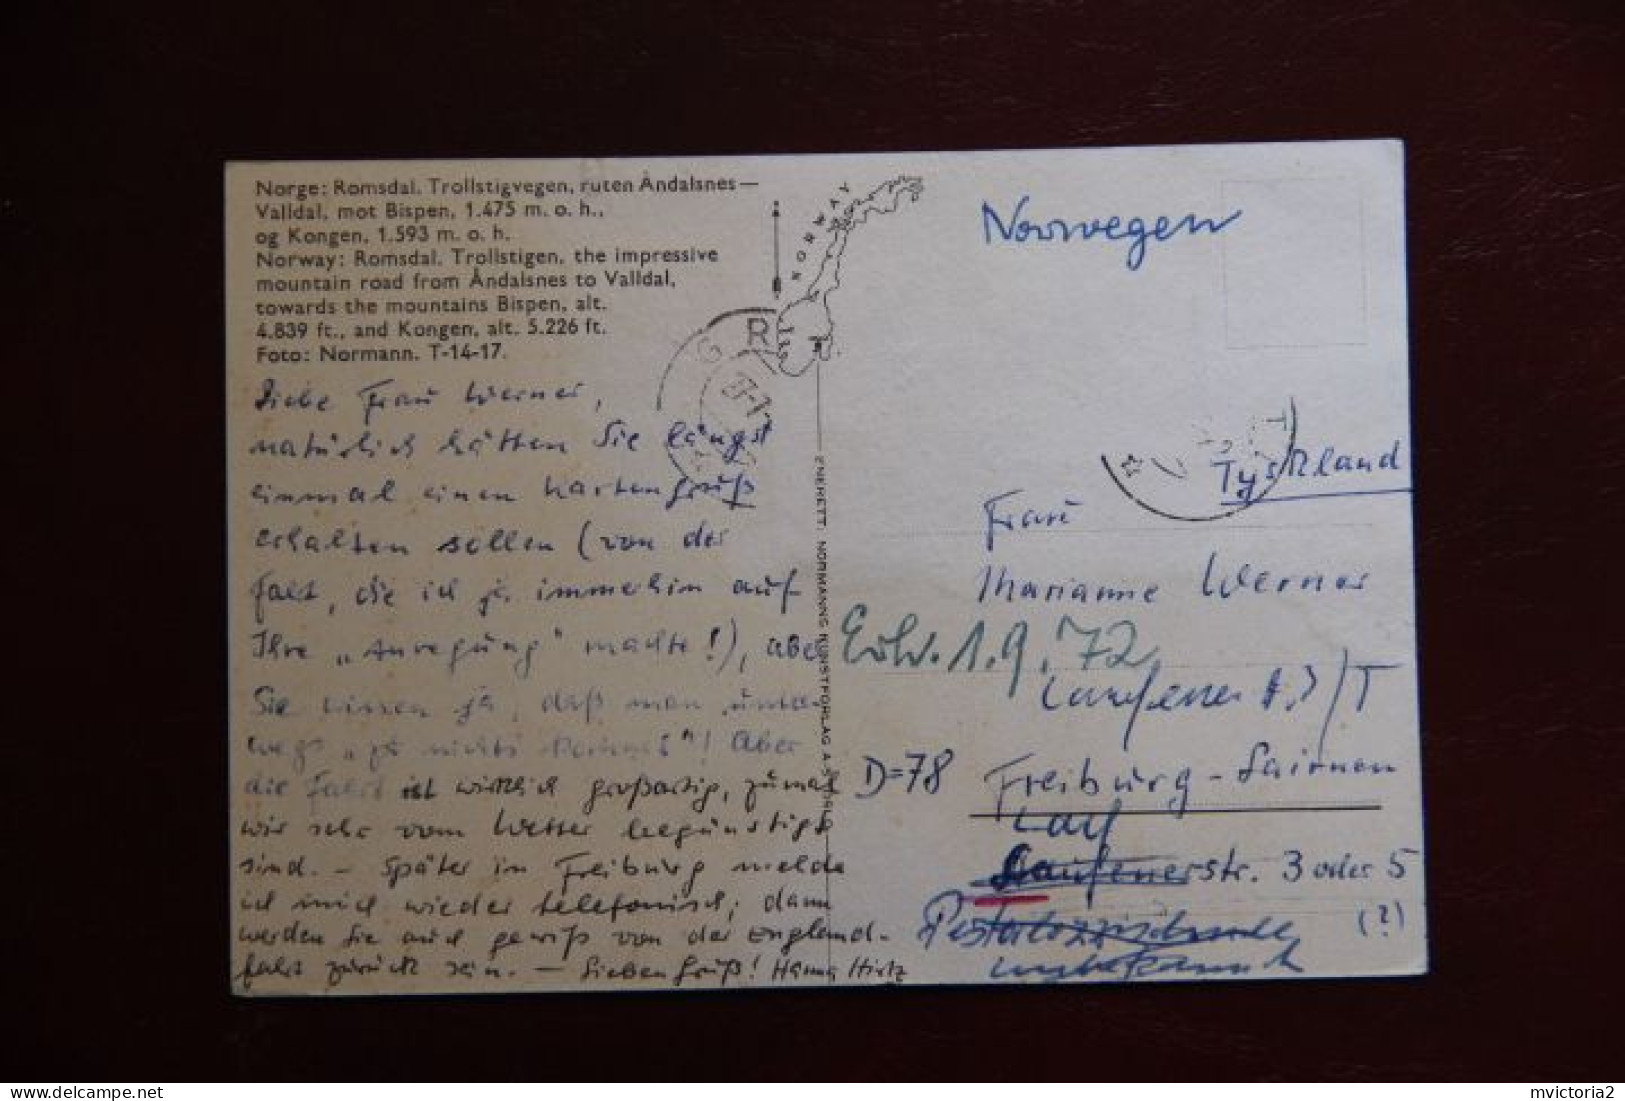 Norge: Romsdal. Trollstigvegen, ruten Åndalsnes—
Valldal, mot Bispen, 1.475 m. o. h.,
og Kongen, 1.593 m. o. h.
Norway: Romsdal. Trollstigen, the impressive
mountain road from Åndalsnes to Valldal,
towards the mountains Bispen, alt.
4.839 ft., and Kongen, alt. 5.226 ft.
Foto: Normann. T-14-17.
Liebe Frau Werner,
natürlich hätten Sie längst
einmal einen Kartengruß
erhalten sollen (von der
Fahrt, die ich ja immerhin auf
Ihre „Anregung" machte!), aber
Sie wissen ja, daß man unter-
wegs „zu nichts kommt"! Aber
die Fahrt ist wirklich großartig, zumal
wir sehr vom Wetter begünstigt
sind. – Später in Freiburg melde
ich mich wieder telefonisch; dann
werden Sie auch gewiß von der England-
fahrt zurück sein. – Lieben Gruß! Hanna Hirtz
NORWAY
ENERETT: NORMANNS KUNSTFORLAG A/S OSLO
Norwegen
Tyskland
Frau
Marianne Werner
Erh. 1.9.72
D=78
Freiburg-
Lauf
str. 3 oder 5
(?)
Pestalozzi
unbekannt